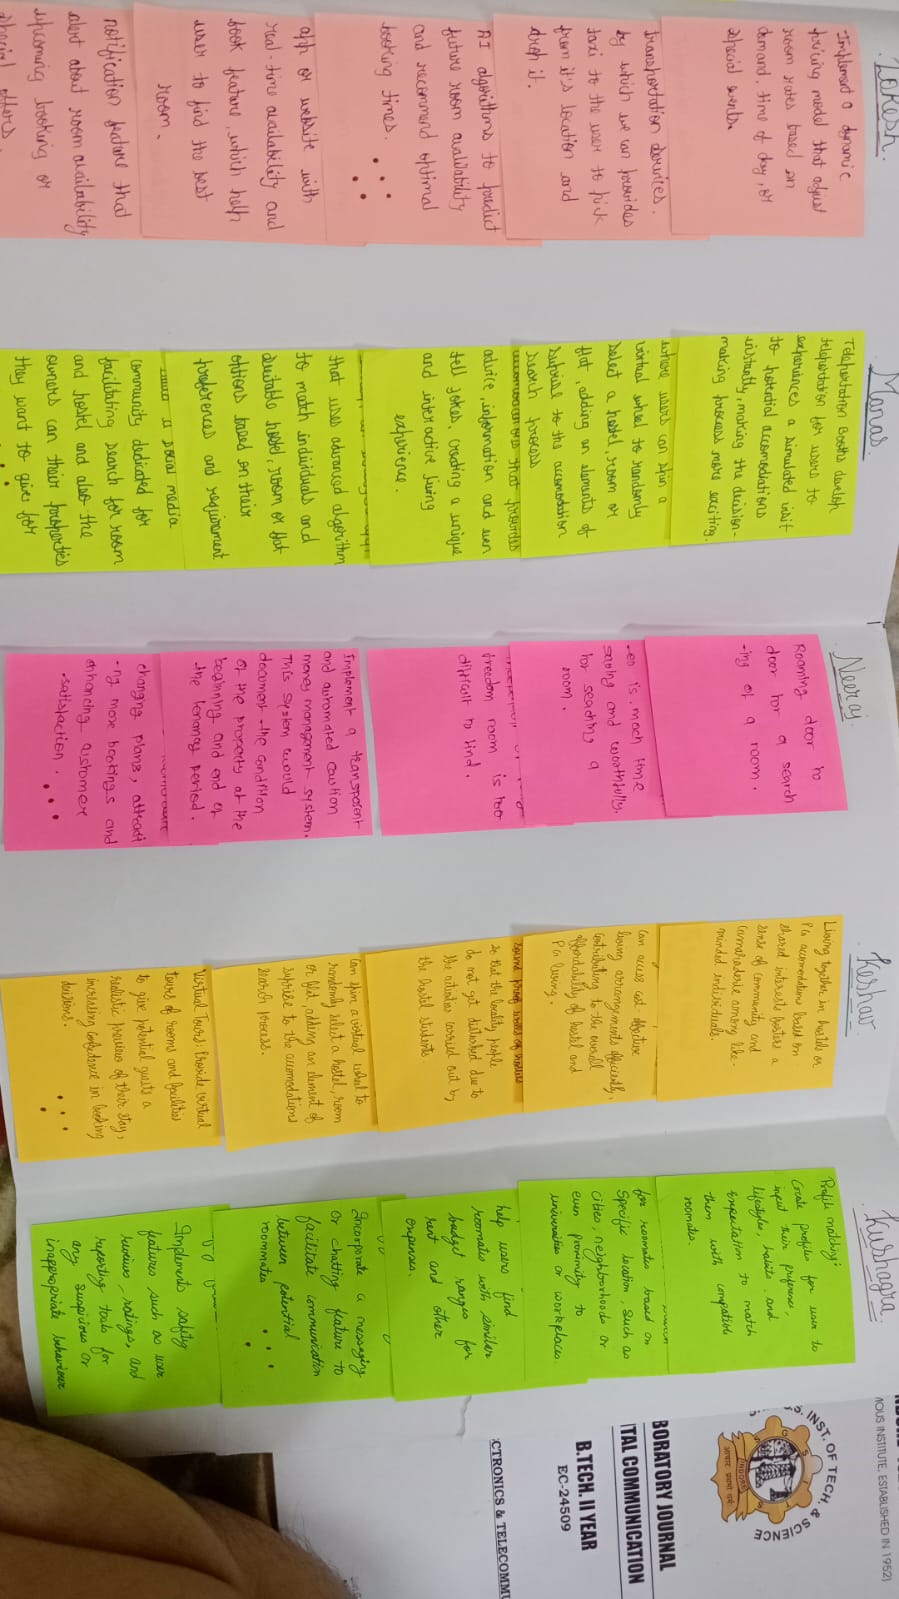 Lokesh.
Implement a dynamic
pricing model that adjust
room rates based on
demand, time of day, or
special events.
transportation services.
by which we can provides
taxi to the user to pick
from it's location and
drop it.
AI algorithms to predict
future room availability
and recommend optimal
booking times.
app or website with
real-time availability and
book feature, which help
user to find the best
room.
notification feature that
alert about room availability
upcoming booking or
special offers.
Manas.
Teleportation Booths develop
teleportation for users to
experiences a simulated visit
to potential accomodations
instantly, making the decision-
making process more exciting.
where users can spin a
virtual wheel to randomly
select a hostel, room or
flat, adding an elements of
surprise to the accomodation
search process
that provides
advice, information and even
tell jokes, creating a unique
and interactive living
experience.
that uses advanced algorithm
to match individuals and
suitable hostel, room or flat
options based on their
preferences and requirement
a social media
community dedicated for
facilitating search for room
and hostel and also the
owners can their properties
they want to give for
Neeraj
Roaming door to
door for a search
-ing of a room.
-es is. much time
saving and worthfully.
for seaching a
room.
freedom room is too
difficult to find.
Implement a transparent
and automated caution
money management system.
This system would
document the condition
of the property at the
beginning and end of
the tenancy period.
changing plans, attract
-ng more bookings and
enhancing customer
-satisfaction.
Keshav
Living together in hostels or
PG accomodations based on
shared interests fosters a
sense of community and
camaraderie among like-
minded individuals.
Can access cost effective
living arrangements efficiently,
contributing to the overall
affordability of hostel and
PG living.
sound proof walls of hostels
so that the locality people
do not get disturbed due to
the activities carried out by
the hostel students
Can spin a virtual wheel to
randomly select a hostel, room
or flat, adding an element of
surprise to the accomodations
search process.
Virtual Tours: Provide virtual
tours of rooms and facilities
to give potential guests a
realistic preview of their stay,
increasing confidence in booking
decisions.
Kushagra
Profile matching:
Create profiles for user to
input their preference,
lifestyles, habits and
expectation to match
them with compatible
roomates.
for roomates based on
Specific location, such as
cities, neighborhoods or
even proximity to
universities or workplaces
help users find
roomates with similar
budget ranges for
rent and other
expenses.
Incorporate a messaging
or chatting feature to
facilitate communication
between potential
roommates
Implements safety
features such as user
reviews, ratings, and
reporting tools for
any suspicious or
inappropriate behaviour
MOUS INSTITUTE, ESTABLISHED IN 1952)
S. INST. OF TECH. & SCIENCE
INDORE
BORATORY JOURNAL
ITAL COMMUNICATION
B.TECH. II YEAR
EC-24509
CTRONICS & TELECOMMU